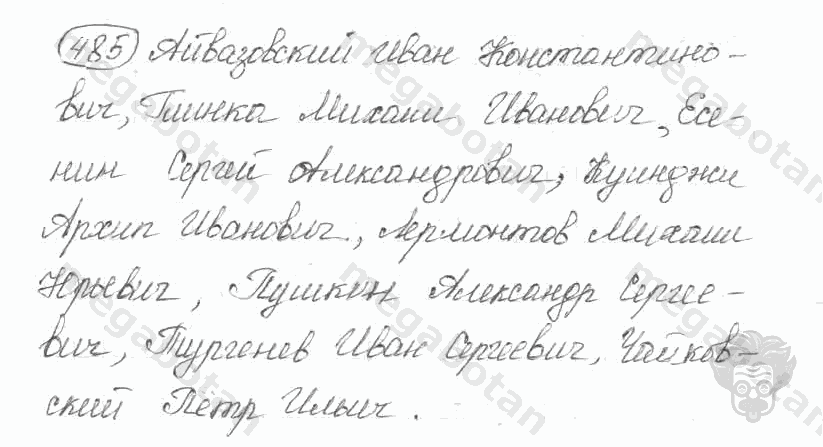 485 Айвазовский Иван Константино-
вич, Глинка Михаил Иванович, Есе-
нин Сергей Александрович, Куинджи
Архип Иванович, Лермонтов Михаил
Юрьевич, Пушкин Александр Сергее-
вич, Тургенев Иван Сергеевич, Чайков-
ский Пётр Ильич.
megabotan
megabotan
megabotan
megabotan
megabotan
megabotan